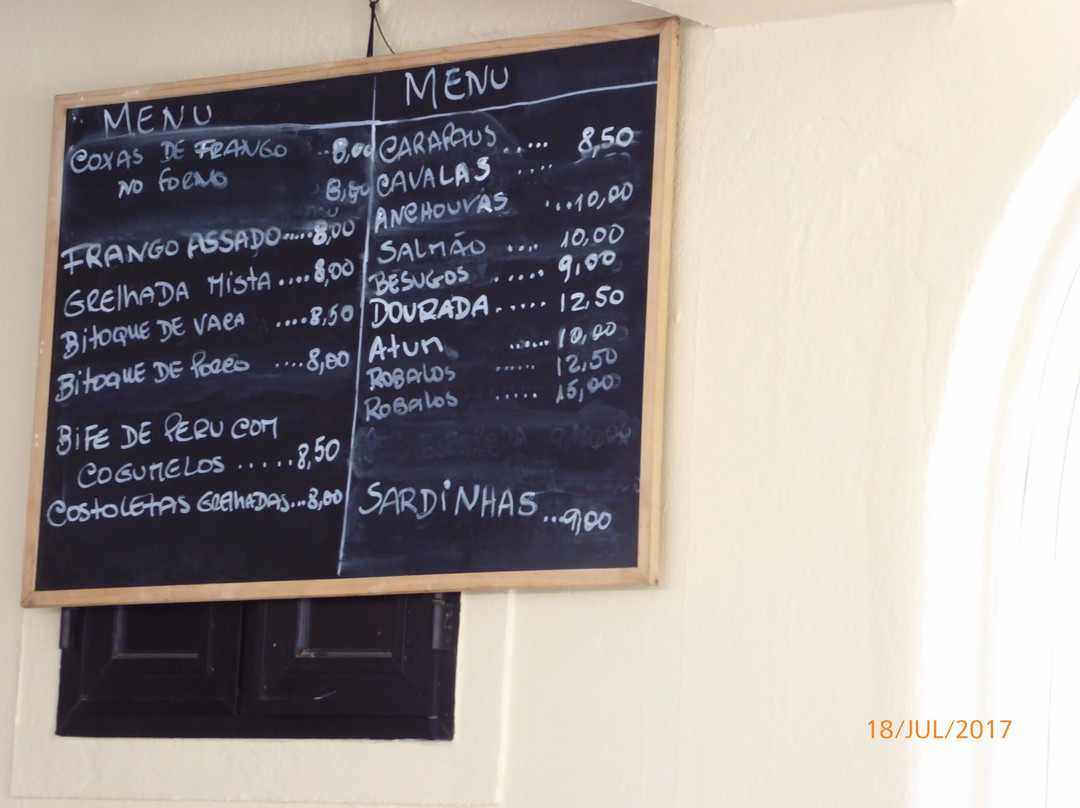 MENU
COXAS DE FRANGO ..8,00
NO FORNO 8,50
FRANGO ASSADO.....8,00
GRELHADA MISTA ....8,00
BITOQUE DE VACA ....8,50
BITOQUE DE PORCO ....8,00
BIFE DE PERU COM
COGUMELOS .....8,50
COSTOLETAS GRELHADAS...8,00
MENU
CARAPAUS ..... 8,50
CAVALAS ....
ANCHOUVAS ...10,00
SALMÃO .... 10,00
BESUGOS ..... 9,00
DOURADA ..... 12,50
ATUM ...... 10,00
ROBALOS ..... 12,50
ROBALOS ..... 15,00
SARDINHAS ...9,00
18/JUL/2017